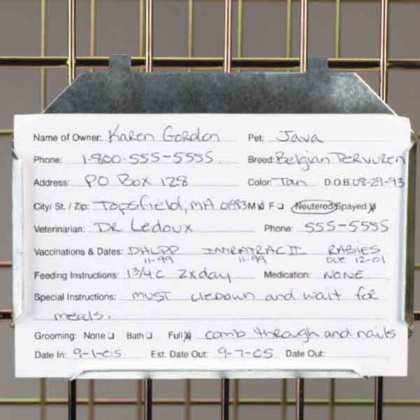 Name of Owner: Karen Gordon Pet: Java
Phone: 1-800-555-5555 Breed: Belgian Tervuren
Address: PO Box 128 Color: Tan D.O.B. 08-29-93
City/ St. / Zip: Topsfield, MA 01983 M F Neutered Spayed
Veterinarian: DR Ledoux Phone: 555-5555
Vaccinations & Dates: DHLPP INTRATRAC II RABIES
11-99 11-99 DUE 12-01
Feeding Instructions: 1 3/4 C 2x day Medication: NONE
Special Instructions: MUST lie down and wait for
meals.
Grooming: None Bath Full comb through and nails
Date In: 9-1-05 Est. Date Out: 9-7-05 Date Out: